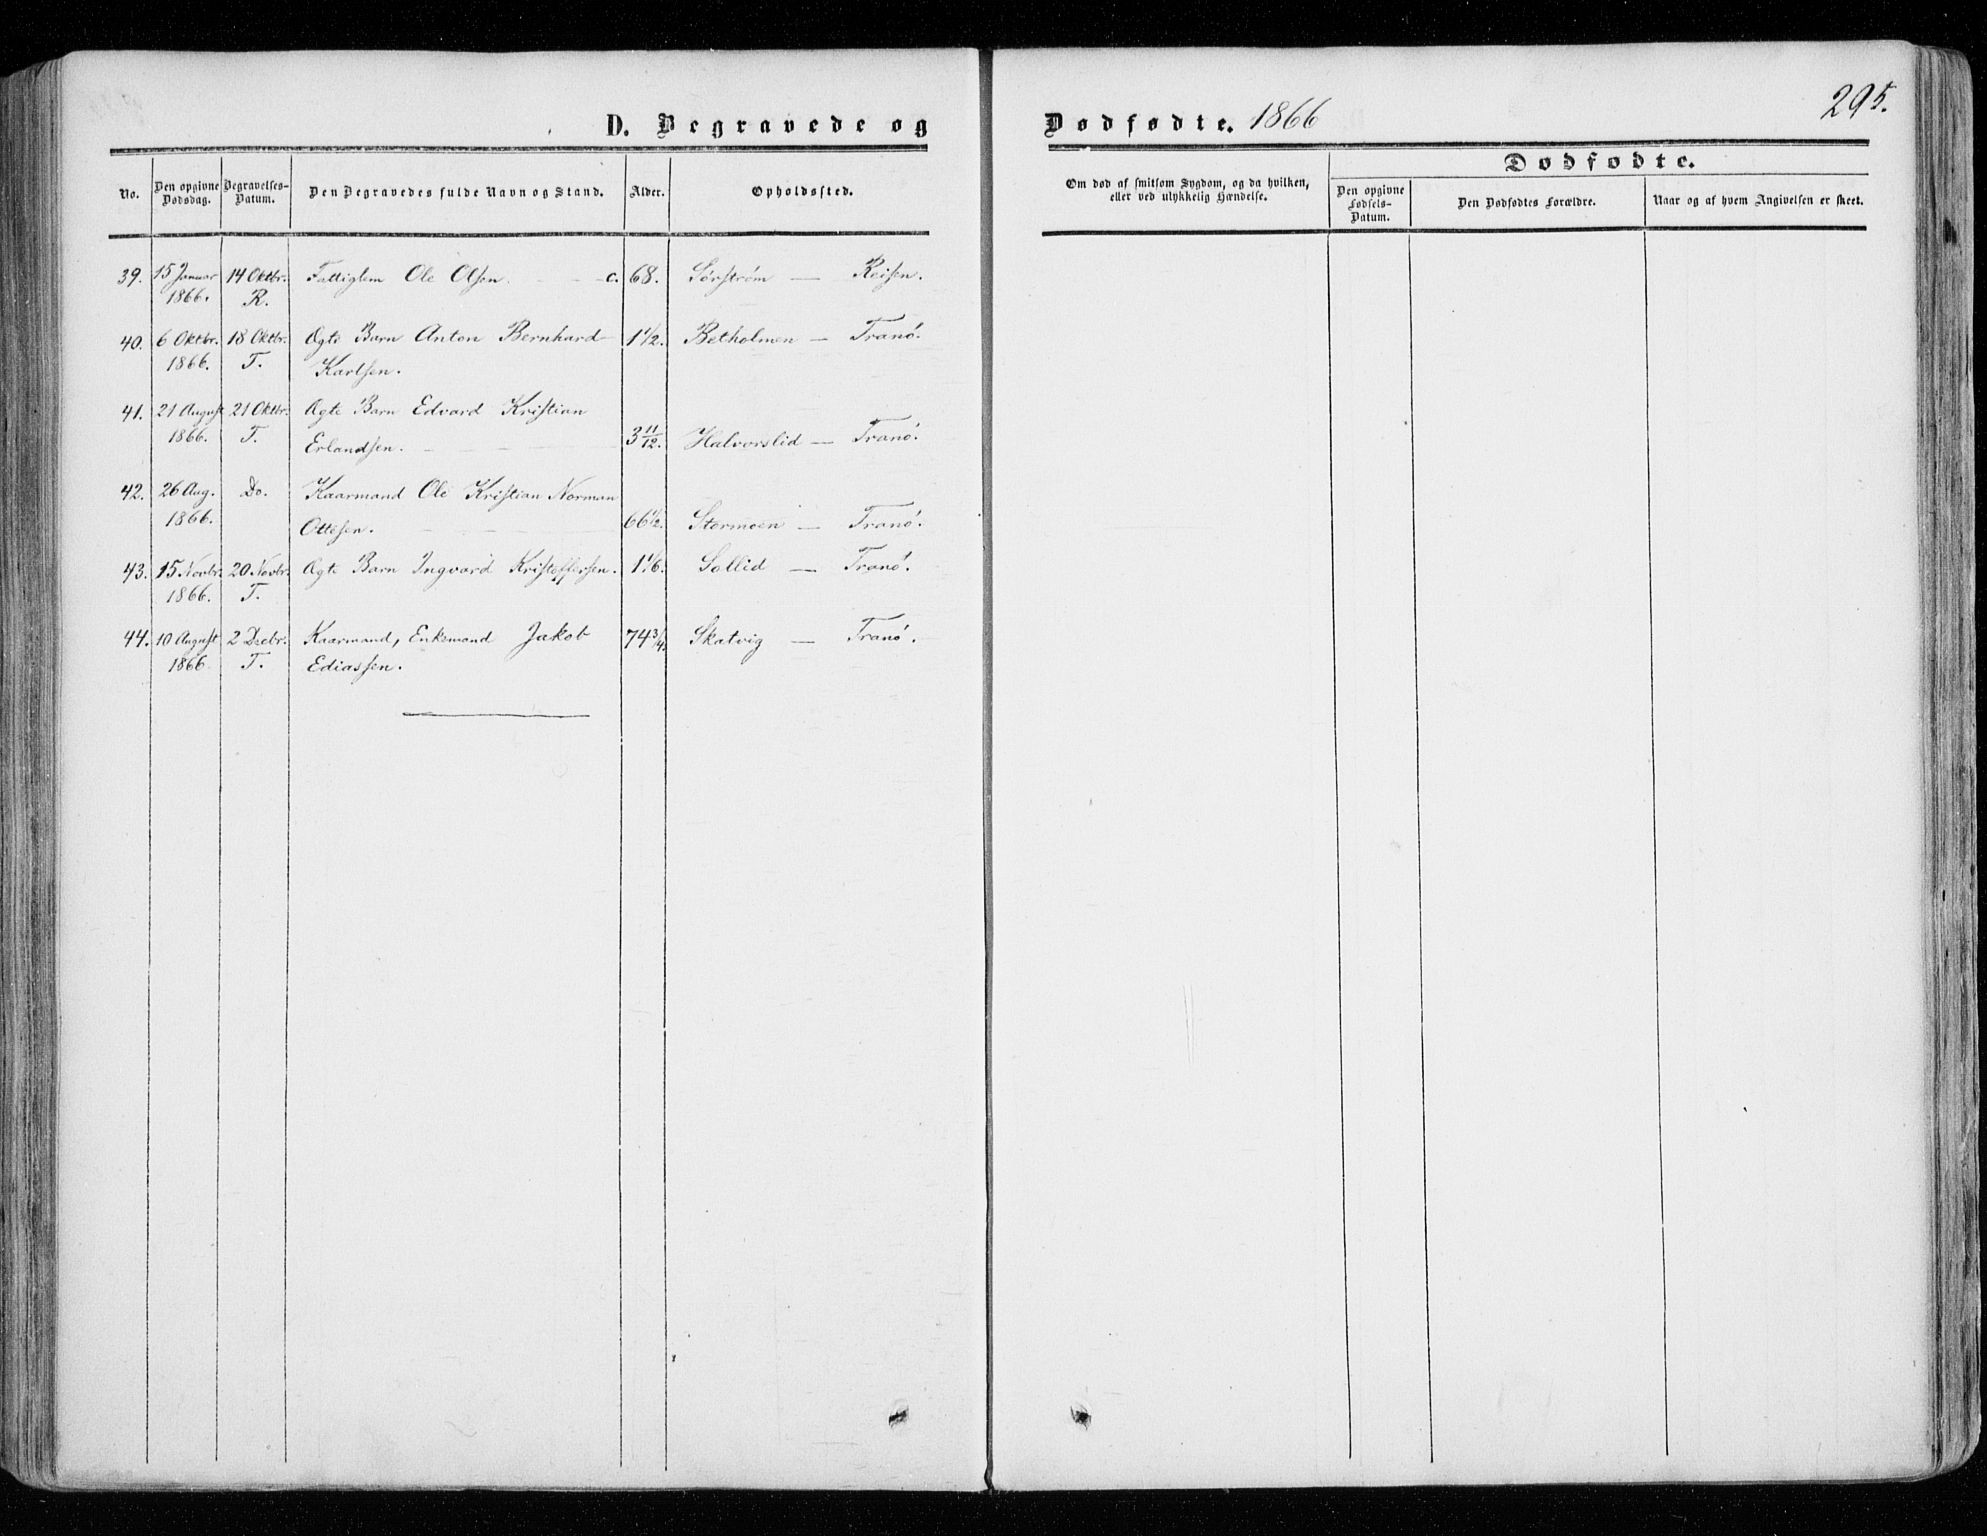 D. Begravede og Dødfødte. 1866
295.
No.
Den opgivne Dødsdag.
Begravelses-Datum.
Den Begravedes fulde Navn og Stand.
Alder.
Opholdssted.
Om død af smitsom Sygdom, og da hvilken,
eller ved ulykkelig Hændelse.
Dødfødte.
Den opgivne Fødsels-Datum.
Den Dødfødtes Forældre.
Naar og af hvem Angivelsen er skeet.
39. 15 Januar 14 Oktbr. Fattiglem Ole Olsen. c. 68. Sørstrøm — Reisen.
1866. R.
40. 6 Oktbr. 18 Oktbr. Ægte Barn Anton Bernhard 1 1/2. Betholmen — Tranø.
1866. T. Karlsen.
41. 21 August 21 Oktbr. Ægte Barn Edvard Kristian
1866. T. Erlandsen. 3 11/12. Halvorslid — Tranø.
42. 26 Aug. Do. Kaarmand Ole Kristian Norman
1866. Ottesen. 66 1/2. Stormoen — Tranø.
43. 15 Novbr. 20 Novbr. Ægte Barn Ingvard Kristoffersen. 1 1/6. Sollid — Tranø.
1866. T.
44. 10 August 2 Decbr. Kaarmand, Enkemand Jakob 74 3/4. Skatvig — Tranø.
1866 T. Ediassen.